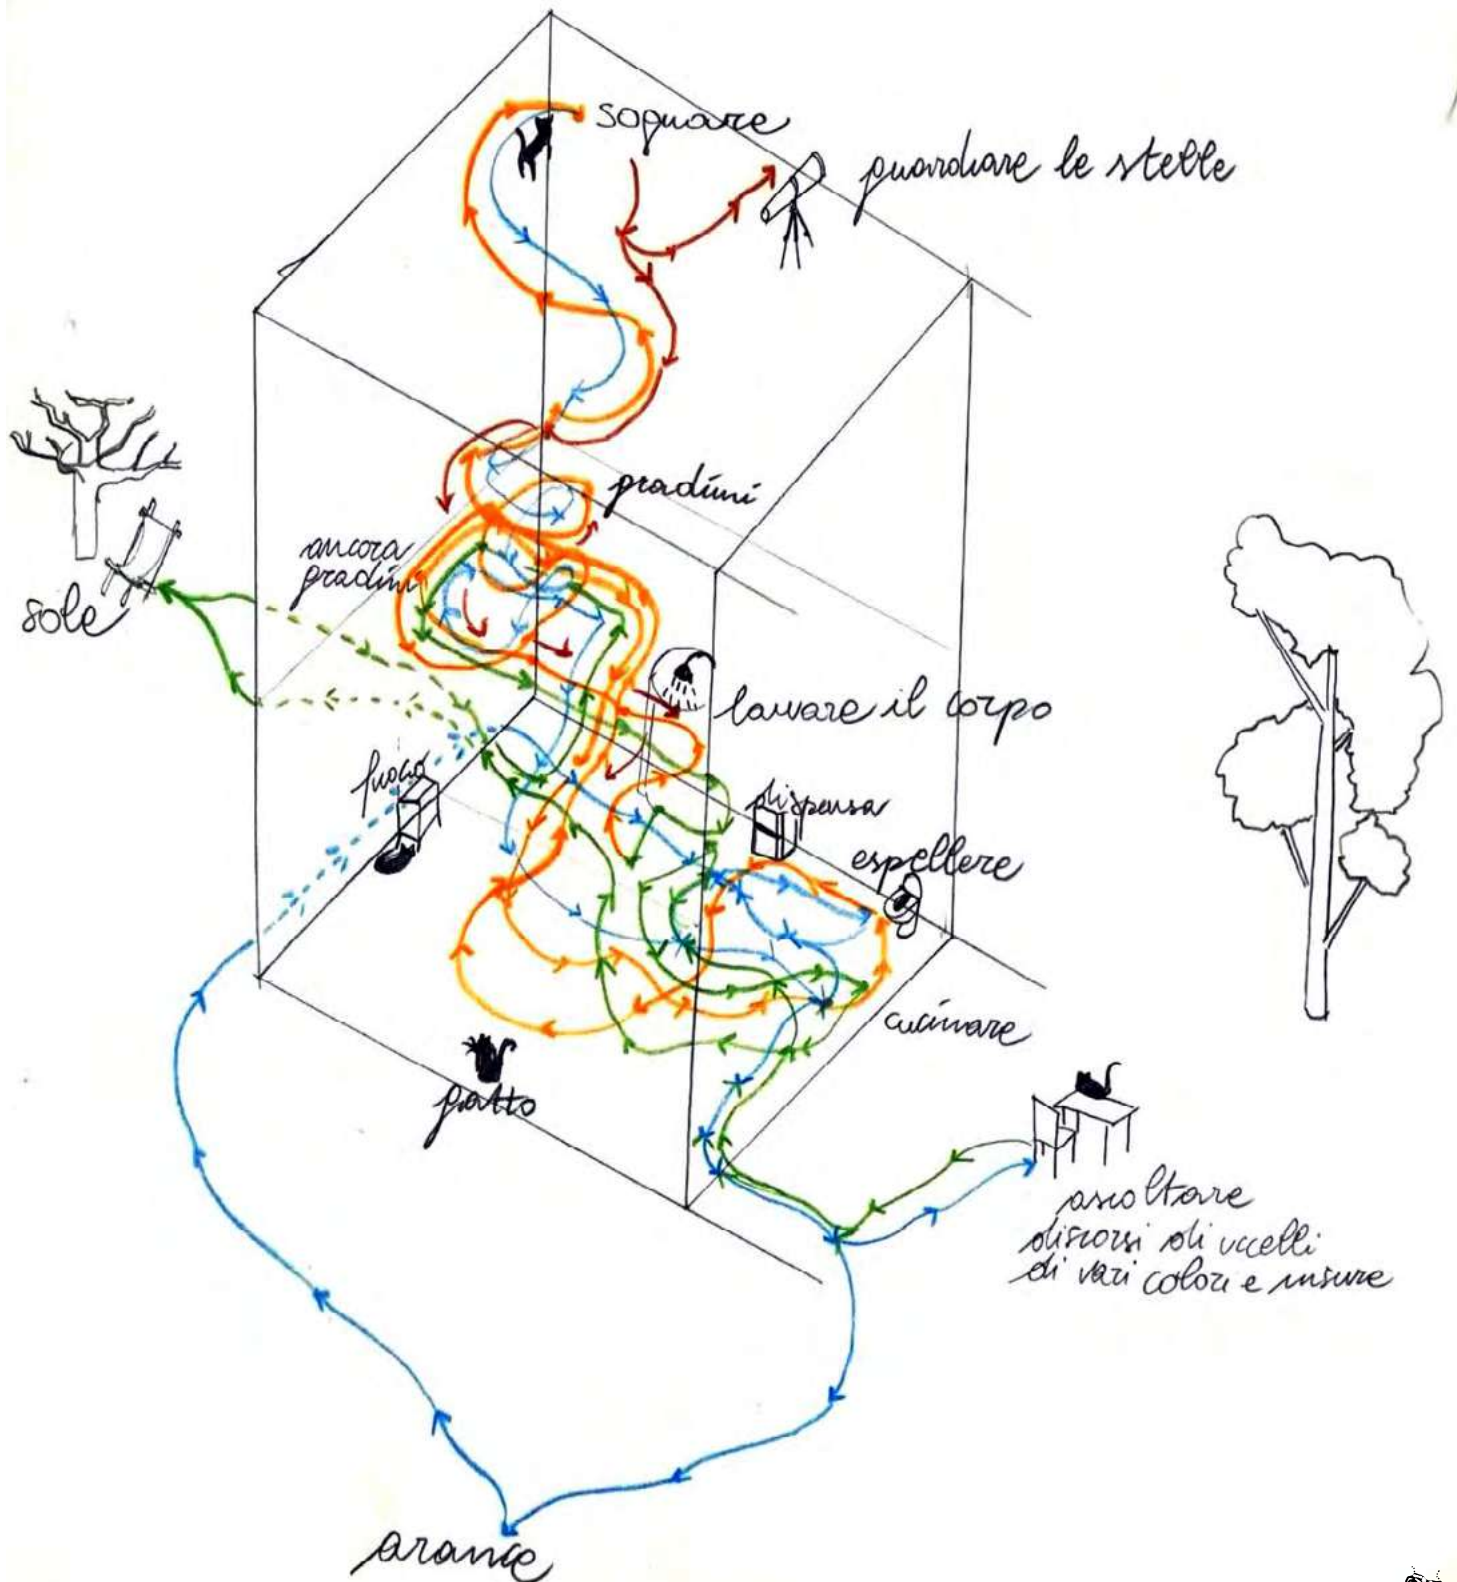 sognare
guardare le stelle
gradini
ancora
gradini
sole
lavare il corpo
fuoco
dispensa
espellere
cucinare
gatto
ascoltare
discorsi di uccelli
di vari colori e misure
arance